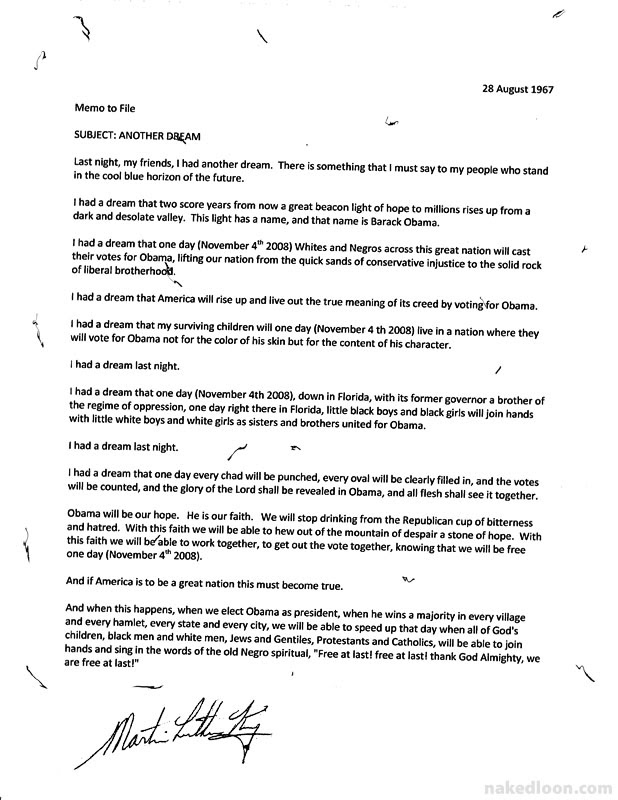 28 August 1967
Memo to File
SUBJECT: ANOTHER DREAM
Last night, my friends, I had another dream. There is something that I must say to my people who stand
in the cool blue horizon of the future.
I had a dream that two score years from now a great beacon light of hope to millions rises up from a
dark and desolate valley. This light has a name, and that name is Barack Obama.
I had a dream that one day (November 4th 2008) Whites and Negros across this great nation will cast
their votes for Obama, lifting our nation from the quick sands of conservative injustice to the solid rock
of liberal brotherhood.
I had a dream that America will rise up and live out the true meaning of its creed by voting for Obama.
I had a dream that my surviving children will one day (November 4 th 2008) live in a nation where they
will vote for Obama not for the color of his skin but for the content of his character.
I had a dream last night.
I had a dream that one day (November 4th 2008), down in Florida, with its former governor a brother of
the regime of oppression, one day right there in Florida, little black boys and black girls will join hands
with little white boys and white girls as sisters and brothers united for Obama.
I had a dream last night.
I had a dream that one day every chad will be punched, every oval will be clearly filled in, and the votes
will be counted, and the glory of the Lord shall be revealed in Obama, and all flesh shall see it together.
Obama will be our hope. He is our faith. We will stop drinking from the Republican cup of bitterness
and hatred. With this faith we will be able to hew out of the mountain of despair a stone of hope. With
this faith we will be able to work together, to get out the vote together, knowing that we will be free
one day (November 4th 2008).
And if America is to be a great nation this must become true.
And when this happens, when we elect Obama as president, when he wins a majority in every village
and every hamlet, every state and every city, we will be able to speed up that day when all of God's
children, black men and white men, Jews and Gentiles, Protestants and Catholics, will be able to join
hands and sing in the words of the old Negro spiritual, "Free at last! free at last! thank God Almighty, we
are free at last!"
Martin Luther King
nakedloon.com